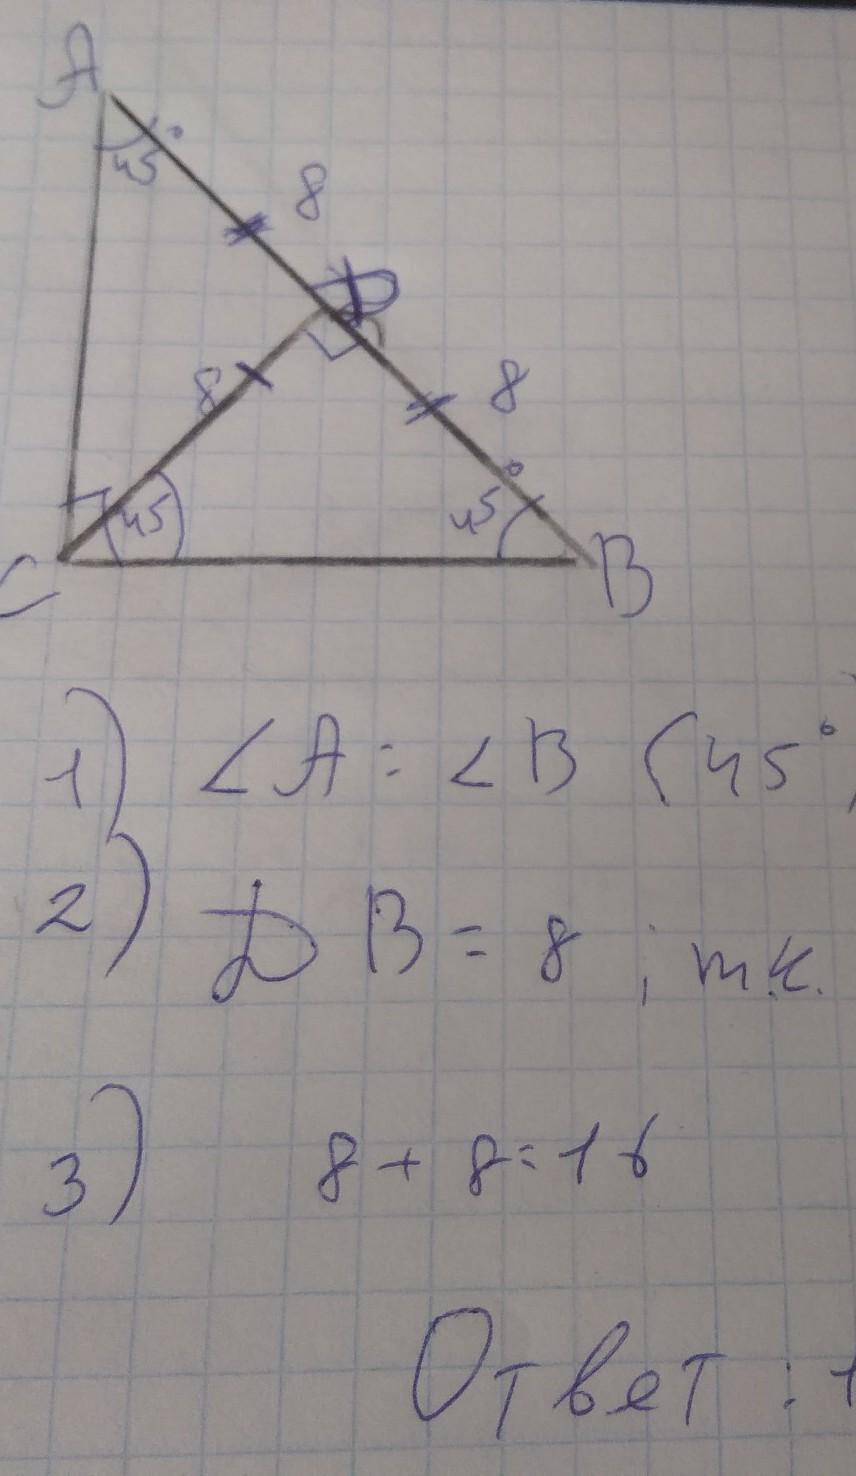 A
45°
8
D
8
8
45
45°
C
B
1) ∠A = ∠B (45°)
2) DB = 8 ; т.к.
3) 8 + 8 = 16
Ответ : 1